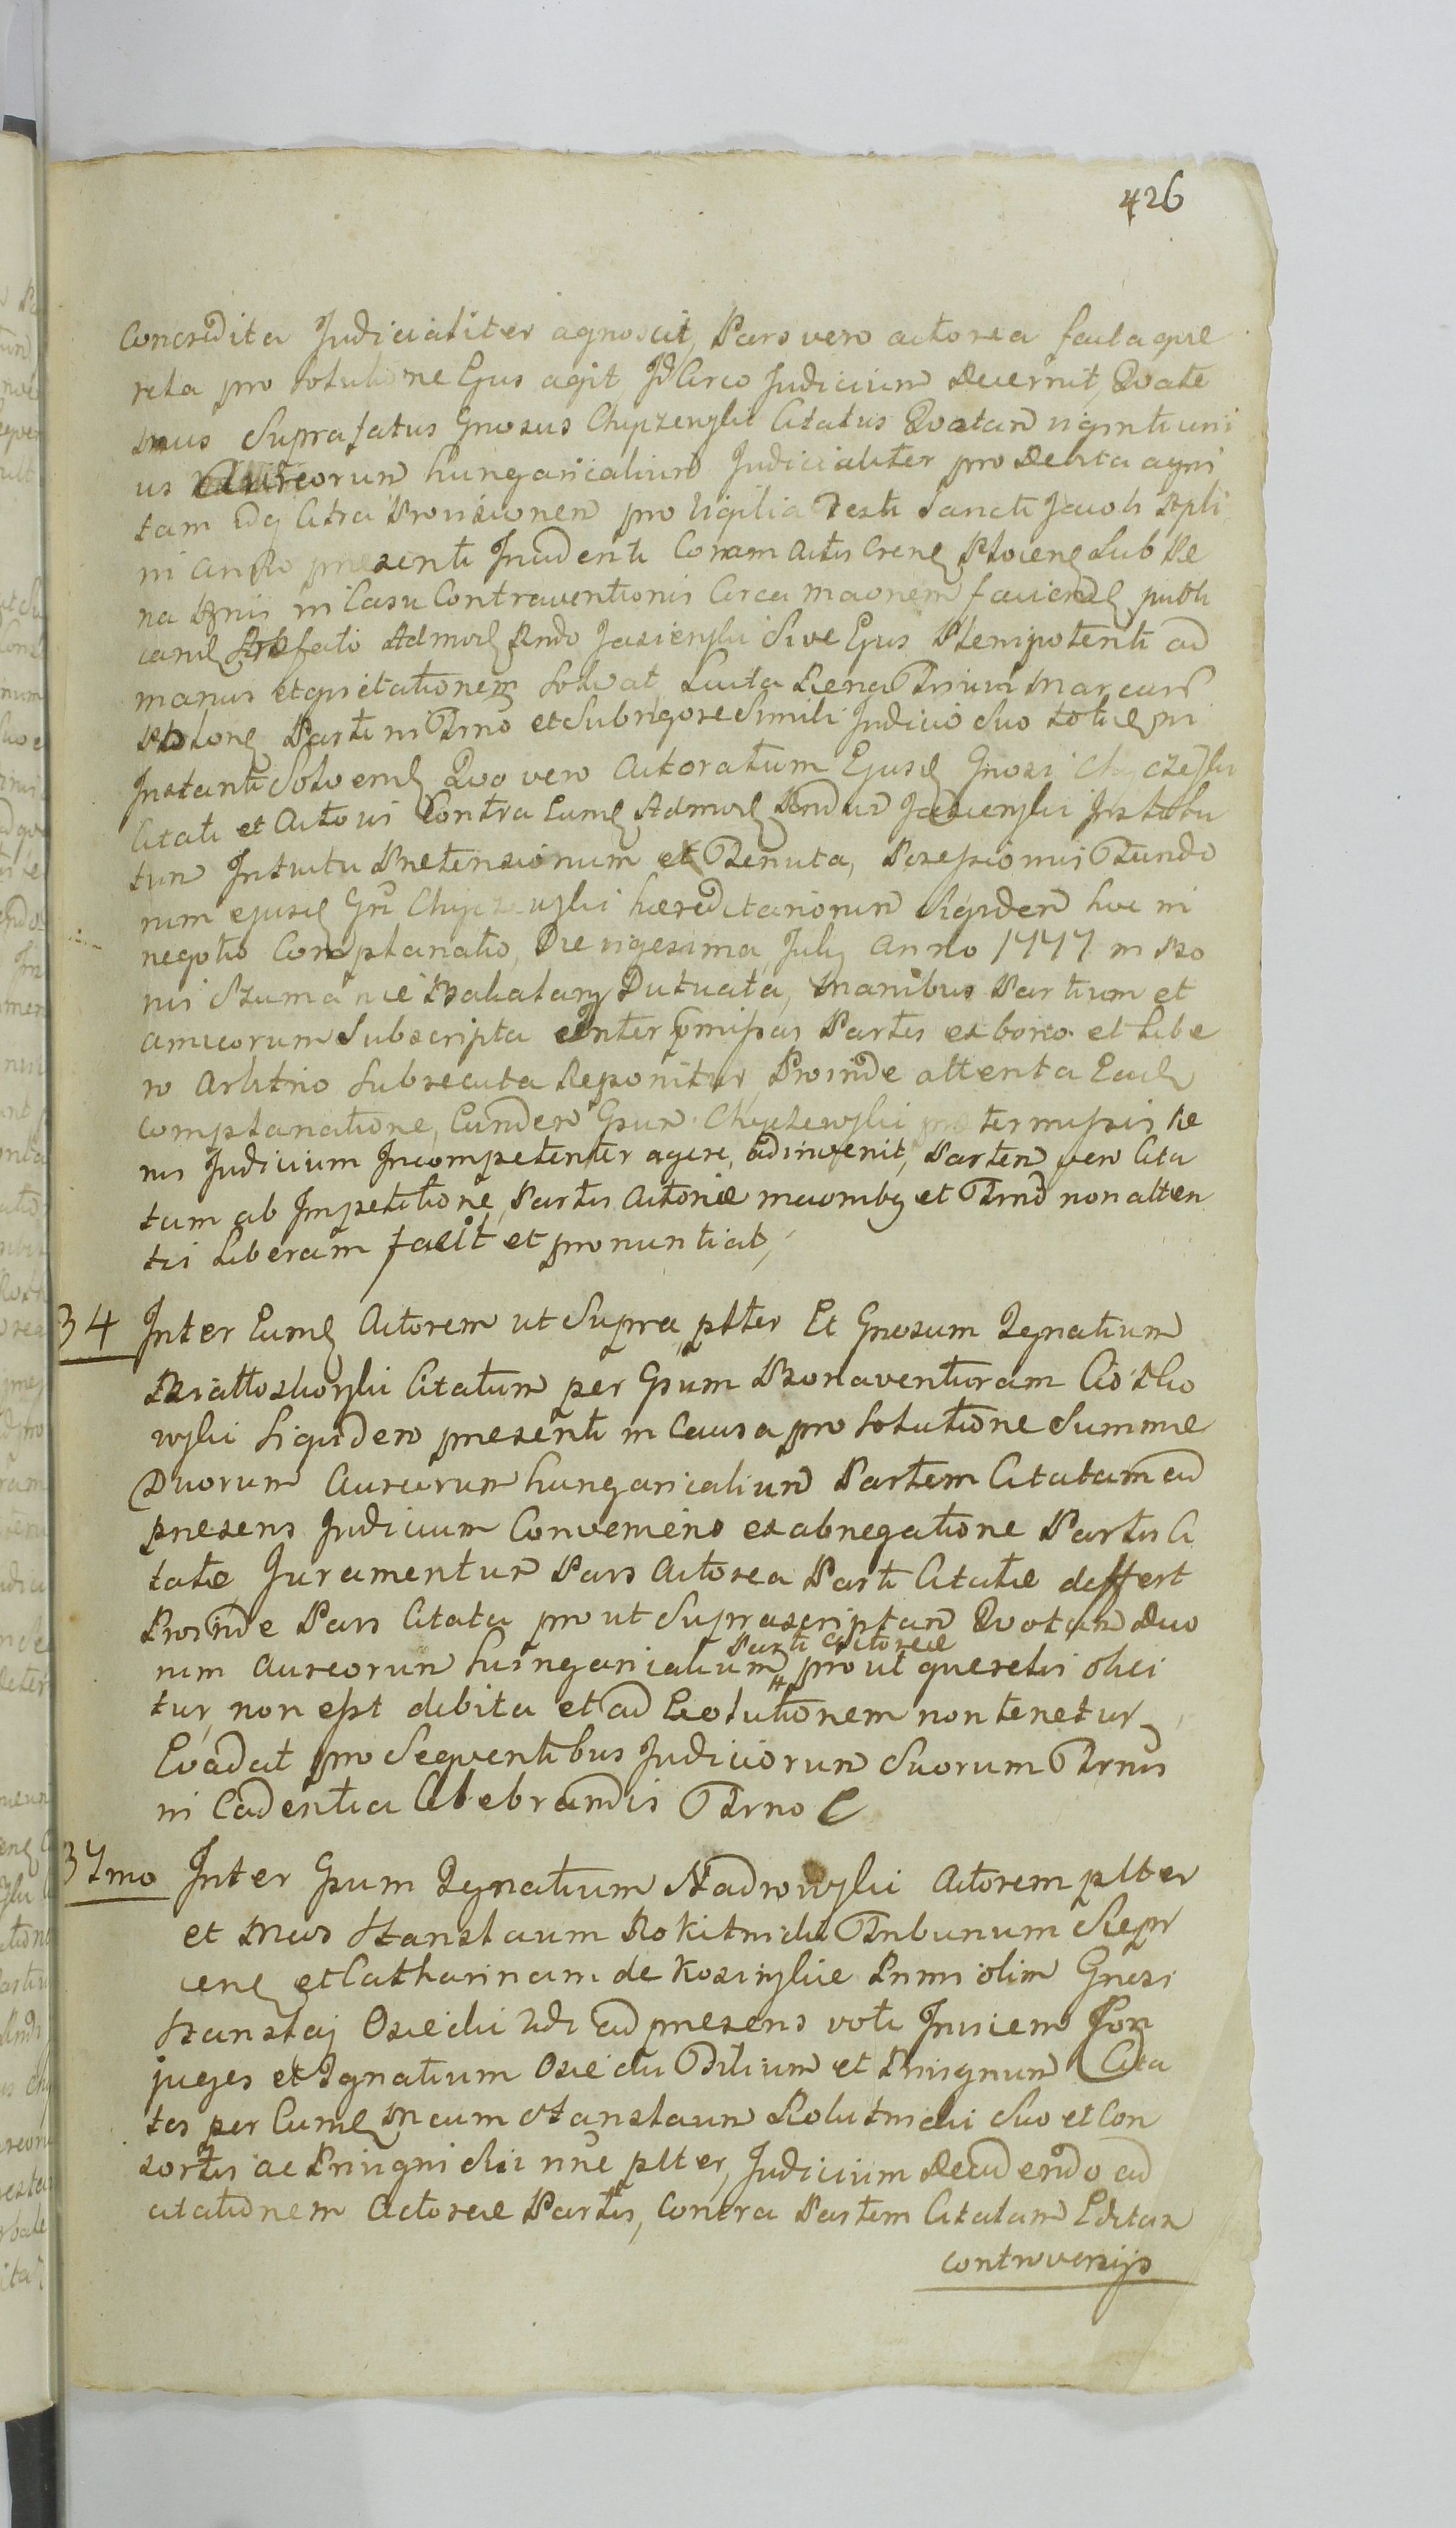 426
Concredita Judicialiter agnoscit, Pars vero actorea facta que
rela pro solutione Ejus agit, Id Circo Judicium Decernit, Quate
nus Suprafatus Gnosus Chyczewski Citatus Quotam viginti uni
us Aureorum hungaricalium Judicialiter pro Debita agni
tam idq Citra Provisionem pro Vigilia Festi Sancti Jacobi Apli
in anno presenti Incidenti Coram Actis Crens Plocens Sub Pe
na Bnis in Casu Contraventionis Circa maonem faciends publi
cands Prefato Admods Rndo Jasienski Sive Ejus Plenipotenti ad
manus et quietationem Solvat, Luita Pena Trium Marcarum
Polons Parti in Trno et Sub rigore Simili Judicio Suo toties in
Instanti Solvends Quo vero Actoratum Ejusd Gnosi Chyczewski
Citati et Actoris Contra Eumd Admods Rndum Jasienski Institu
tum Intuitu Pretensionum et Tenuta, Possessionis Fundo
rum ejusd Gsi Chyczewski haereditariorum Siquidem hoc in
negotio Complanatio, Die vigesima July Anno 1777 in Bo
nis Szumanie Palatu Dutuata, Manibus Partium et
amicorum Subscripta Inter promissas Partes ex bono et Libe
ro Arbitrio Subsecuta Reponitur, Proinde attenta Eads
complanatione, Eundem Gsum Chyczewski pretermissis te
nis Judicium Incompetenter agere, adinvenit, Partem vero Cita
tam ab Impetitione, Partis Actoreae maonibs et Trno non atten
tis Liberam facit et pronuntiat,
34 Inter Eumd Actorem ut Supra plter Et Gnosum Ignatium
Białoskorski Citatum per Gsum Bonaventuram Ciosko
wski Siquidem presenti in Causa pro Solutione Summae
Duorum Aureorum hungaricalium Partem Citatam ad
presens Judicium Conveniens ex abnegatione Partis Ci
tatae Juramentum Pars Actorea Parti Citatae deffert
Proinde Pars Citata prout Suprascriptam Quotam Duo
rum Aureorum hungaricalium Parti Actoreae prout querelis obici
tur, non est debita et ad Exolutionem non tenetur,
Evadat pro Sequentibus Judiciorum Suorum Trnis
in Cadentia Celebrandis Trno
37mo Inter Gsum Ignatium Nadrowski Actorem plter
et Mcos Stanslaum Rokitnicki Tribunum Sierp
cens et Catharinam de Kosinskie Primi olim Gnosi
Stanslaj Osiecki Vdi ad presens voti Invicem Con
juges et Ignatium Osiecki Filium et Privignum Cita
tos per Eumd Mcum Stanslaum Rokitnicki Suo et Con
sortis ac Privigni Sui nne plter, Judicium Decidendo ad
citationem Actoreae Partis, Contra Partem Citatam Editam
controversijs